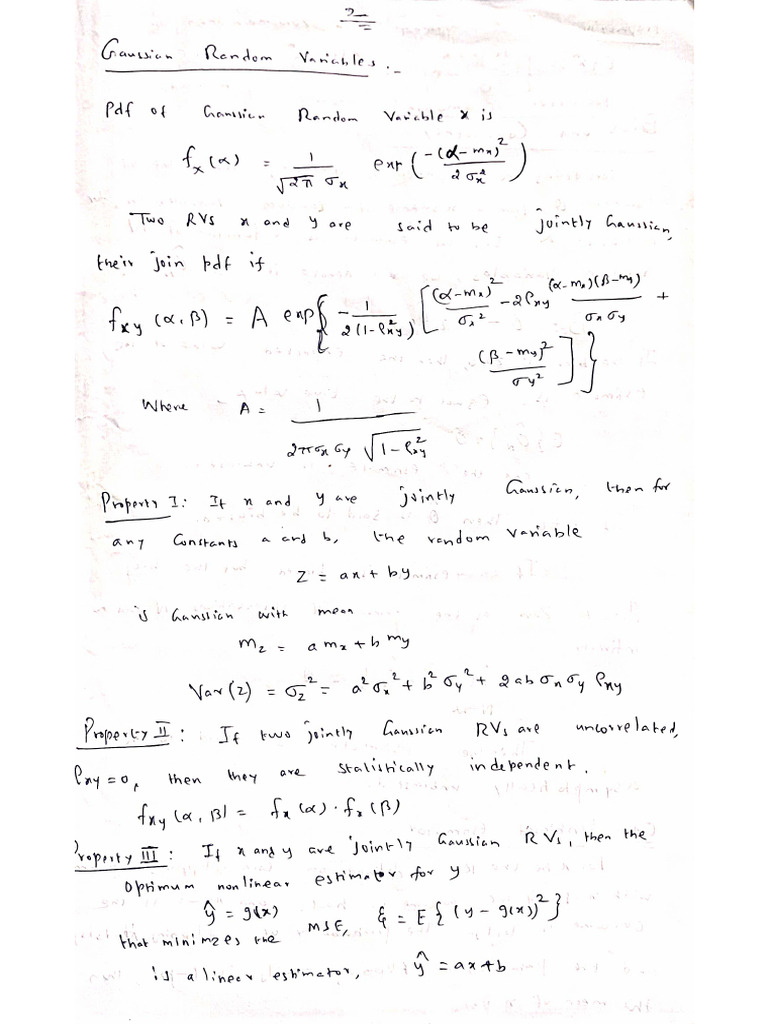 2
Gaussian Random Variables :-
Pdf of Gaussian Random Variable x is
f_x(α) = 1/(√2π σ_x) exp(-(α-m_x)²/2σ_x²)
Two RVs x and y are said to be jointly Gaussian,
their join pdf if
f_xy(α,β) = A exp{-1/2(1-ρ_xy²) [(α-m_x)²/σ_x² - 2ρ_xy (α-m_x)(β-m_y)/σ_x σ_y +
(β-m_y)²/σ_y²]}
Where A = 1/(2πσ_x σ_y √1-ρ_xy²)
Property I: If x and y are jointly Gaussian, then for
any Constants a and b, the random variable
Z = ax + by
is Gaussian with mean
m_z = a m_x + b m_y
Var(z) = σ_z² = a²σ_x² + b²σ_y² + 2ab σ_x σ_y ρ_xy
Property II: If two jointly Gaussian RVs are uncorrelated,
ρ_xy = 0, then they are statistically independent.
f_xy(α,β) = f_x(α) · f_x(β)
Property III: If x and y are jointly Gaussian RVs, then the
optimum nonlinear estimator for y
ŷ = g(x)
that minimzes the MSE, ξ = E{(y - g(x))²}
is a linear estimator, ŷ = ax+b